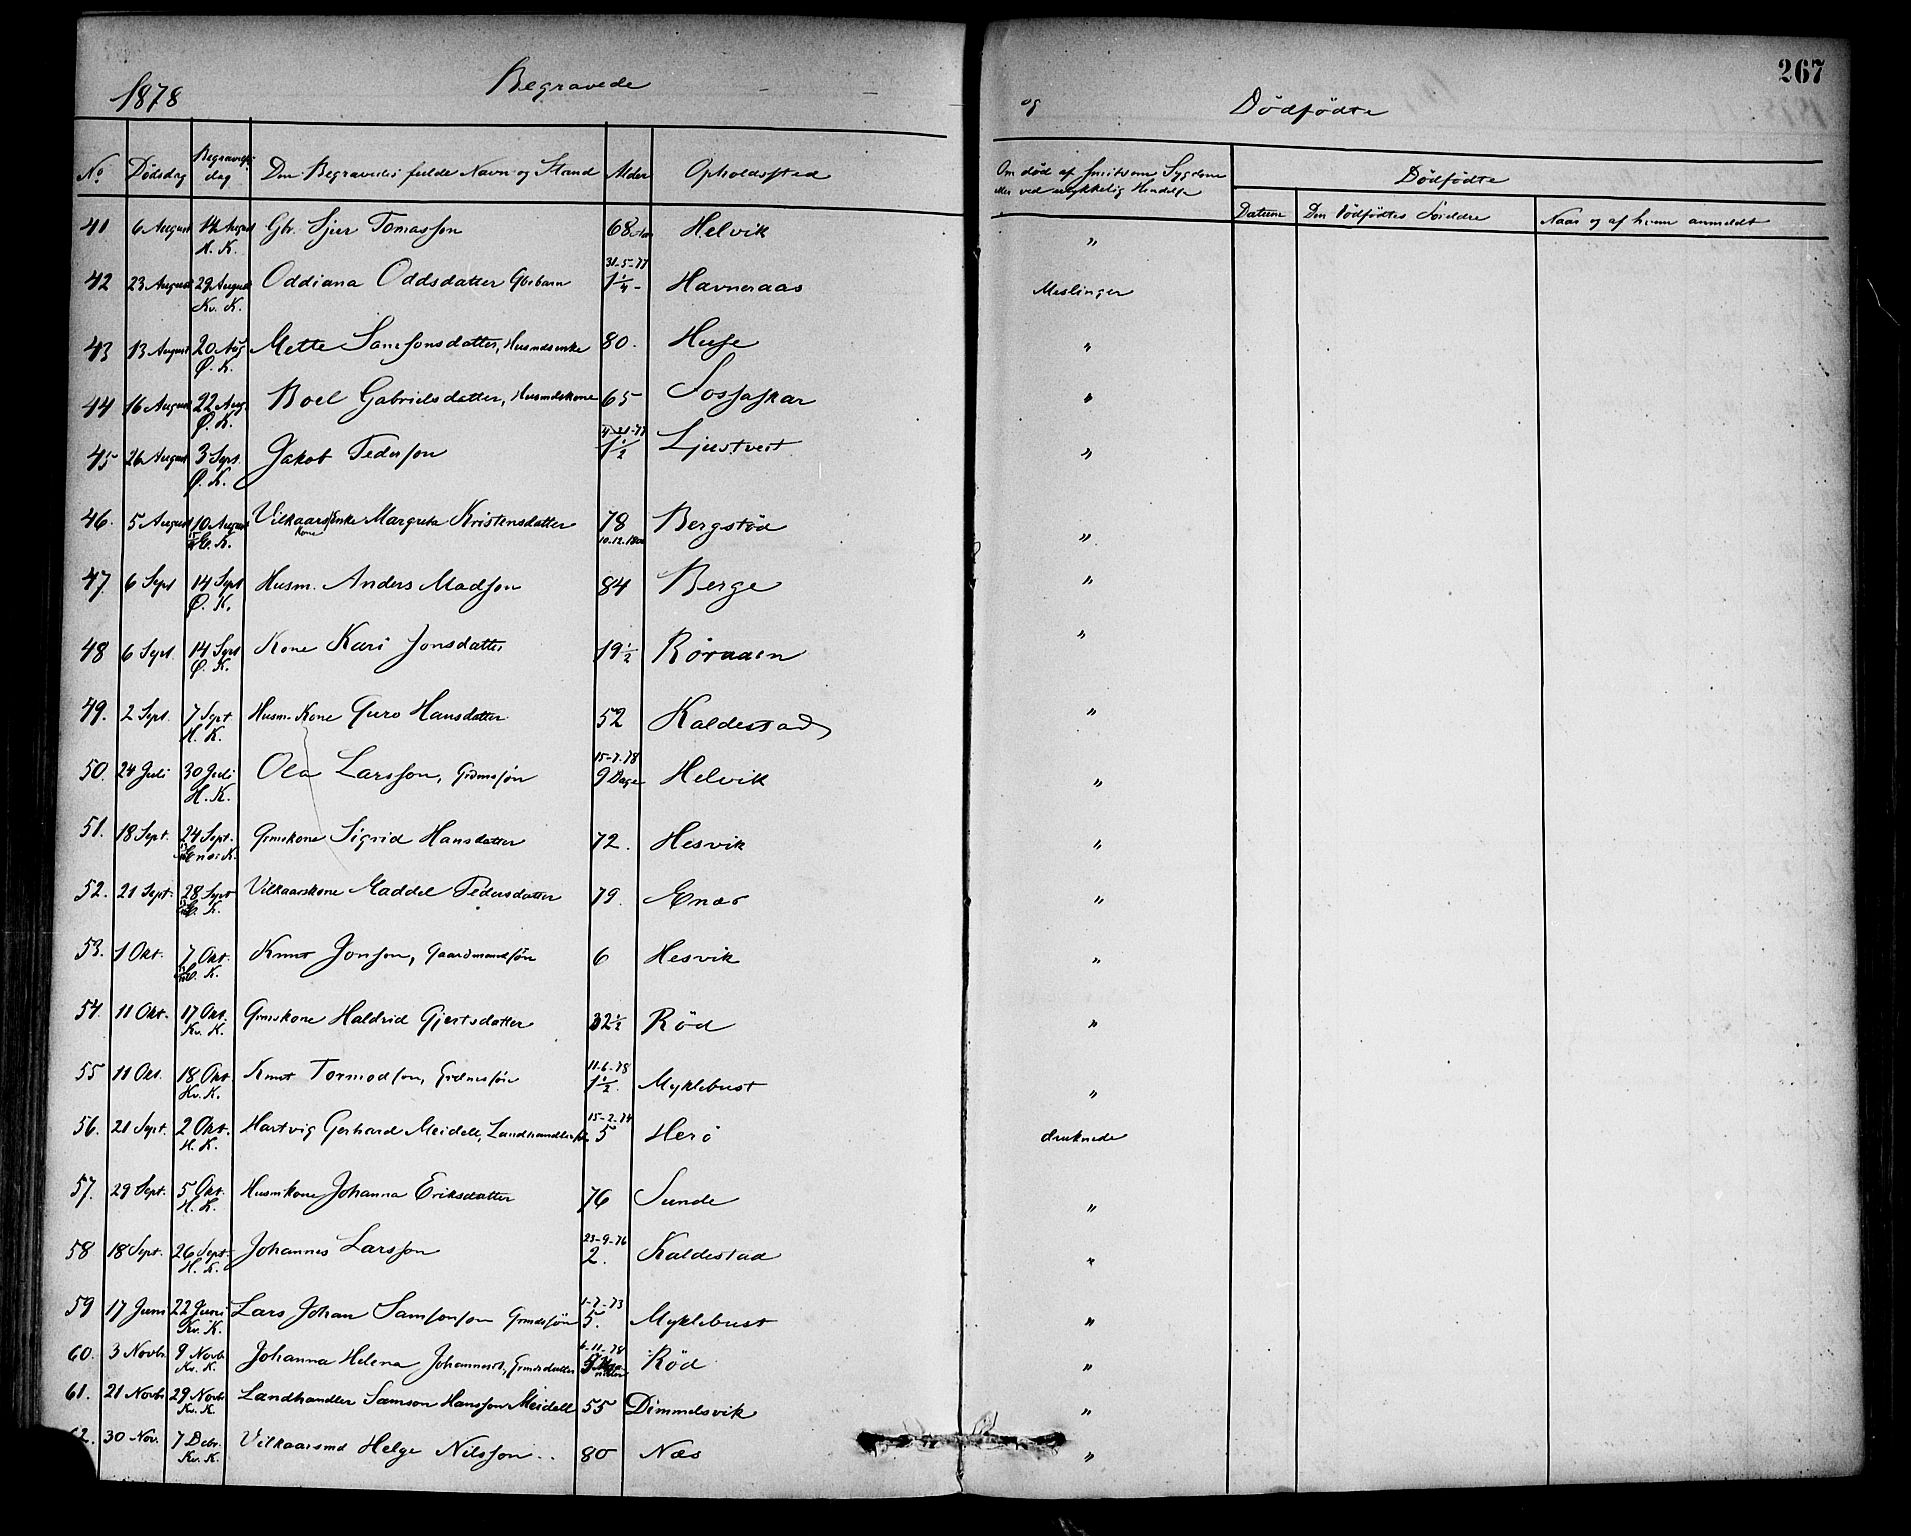 1878 Begravede og Dødfødte 267
No Dødsdag Begravelsesdag Den Begravedes fulde Navn og Stand Alder Opholdssted Om død af smitsom Sygdom eller ved ulykkelig Hendelse Dødfødte
Datum Den Dødfødtes Forældre Naar og af hvem anmeldt
41 6 August 14 August Gbr. Sjur Tomasson 68 Helvik "
H. K.
31-5-77
42 23 August 29 August Oddiana Oddsdatter Gbrbarn 1 1/4 - Havneraas Meslinger
Kv. K.
43 13 August 20 Aug Mette Samsonsdatter, Husmdsenke 80. Huse "
Ø. K.
44 16 August 22 Aug. Boel Gabrielsdatter, Husmdskone 65 "
Ø. K.
45 26 August 3 Sept. Jakob Pederson 1 1/2 "
Ø. K.
46. 5 August 10 August Vilkaars Enke Margreta Kristensdatter 78 Bergstød "
K. Kone 10.12.1800
47 6 Sept 14 Sept Husm. Anders Madsson 84 Berge "
Ø. K.
48 6 Sept. 14 Sept Kone Kari Jonsdatter 19 1/2 Røraaen "
Ø. K.
49. 2 Sept. 7 Sept. Husm. Kone Guro Hansdatter 52 Kaldestad "
H. K.
15-7-78
50. 24 Juli 30 Juli Ola Larsson, Grdmssøn 9 Dage Helvik "
H. K.
51. 18 Sept. 24 Sept. Grmskone Sigrid Hansdatter 72. Hesvik "
52. 21 Sept. 28 Sept Vilkaarskone Maddel Pedersdatter 79. Enæs "
K.
53. 1 Okt. 7 Okt. Knut Jonson, Gaardmandssøn 6 Hesvik "
K.
54. 11 Okt. 17 Okt. Grmskone Haldrid Gjertsdatter 32 1/2 Rød "
Kv. K.
11-6-78
55 11 Okt. 18 Okt. Knut Tormodson, Grdmssøn 1 1/2. Myklebust "
Kv. K.
15-2-74
56. 21 Sept. 2 Okt. Hartvig Gerhard Meidell, Landhandlers 5 Herø druknede
H. K.
57. 29 Sept. 5 Okt. Husmkone Johanna Eriksdatter 76 Sunde "
H. K.
23-9-76
58 18 Sept. 26 Sept. Johannes Larsson 2. Kaldestad "
H. K.
1-7-73
59 17 Juni 22 Juni Lars Johan Samsonson Grmdssøn 5. Myklebust "
Kv. K.
60. 3 Novbr 9 Novb. Johanna Helena Johannesd., Grmdsdatter Rød "
Kv. K.
61. 21 Novbr 29 Novbr Landhandler Samson Hansson Meidell 55 Dimmelsvik "
Kv. K.
62. 30 Nov. 7 Debr. Vilkaarsmd Helge Nilsson.. 80 Næs "
Kv. K.